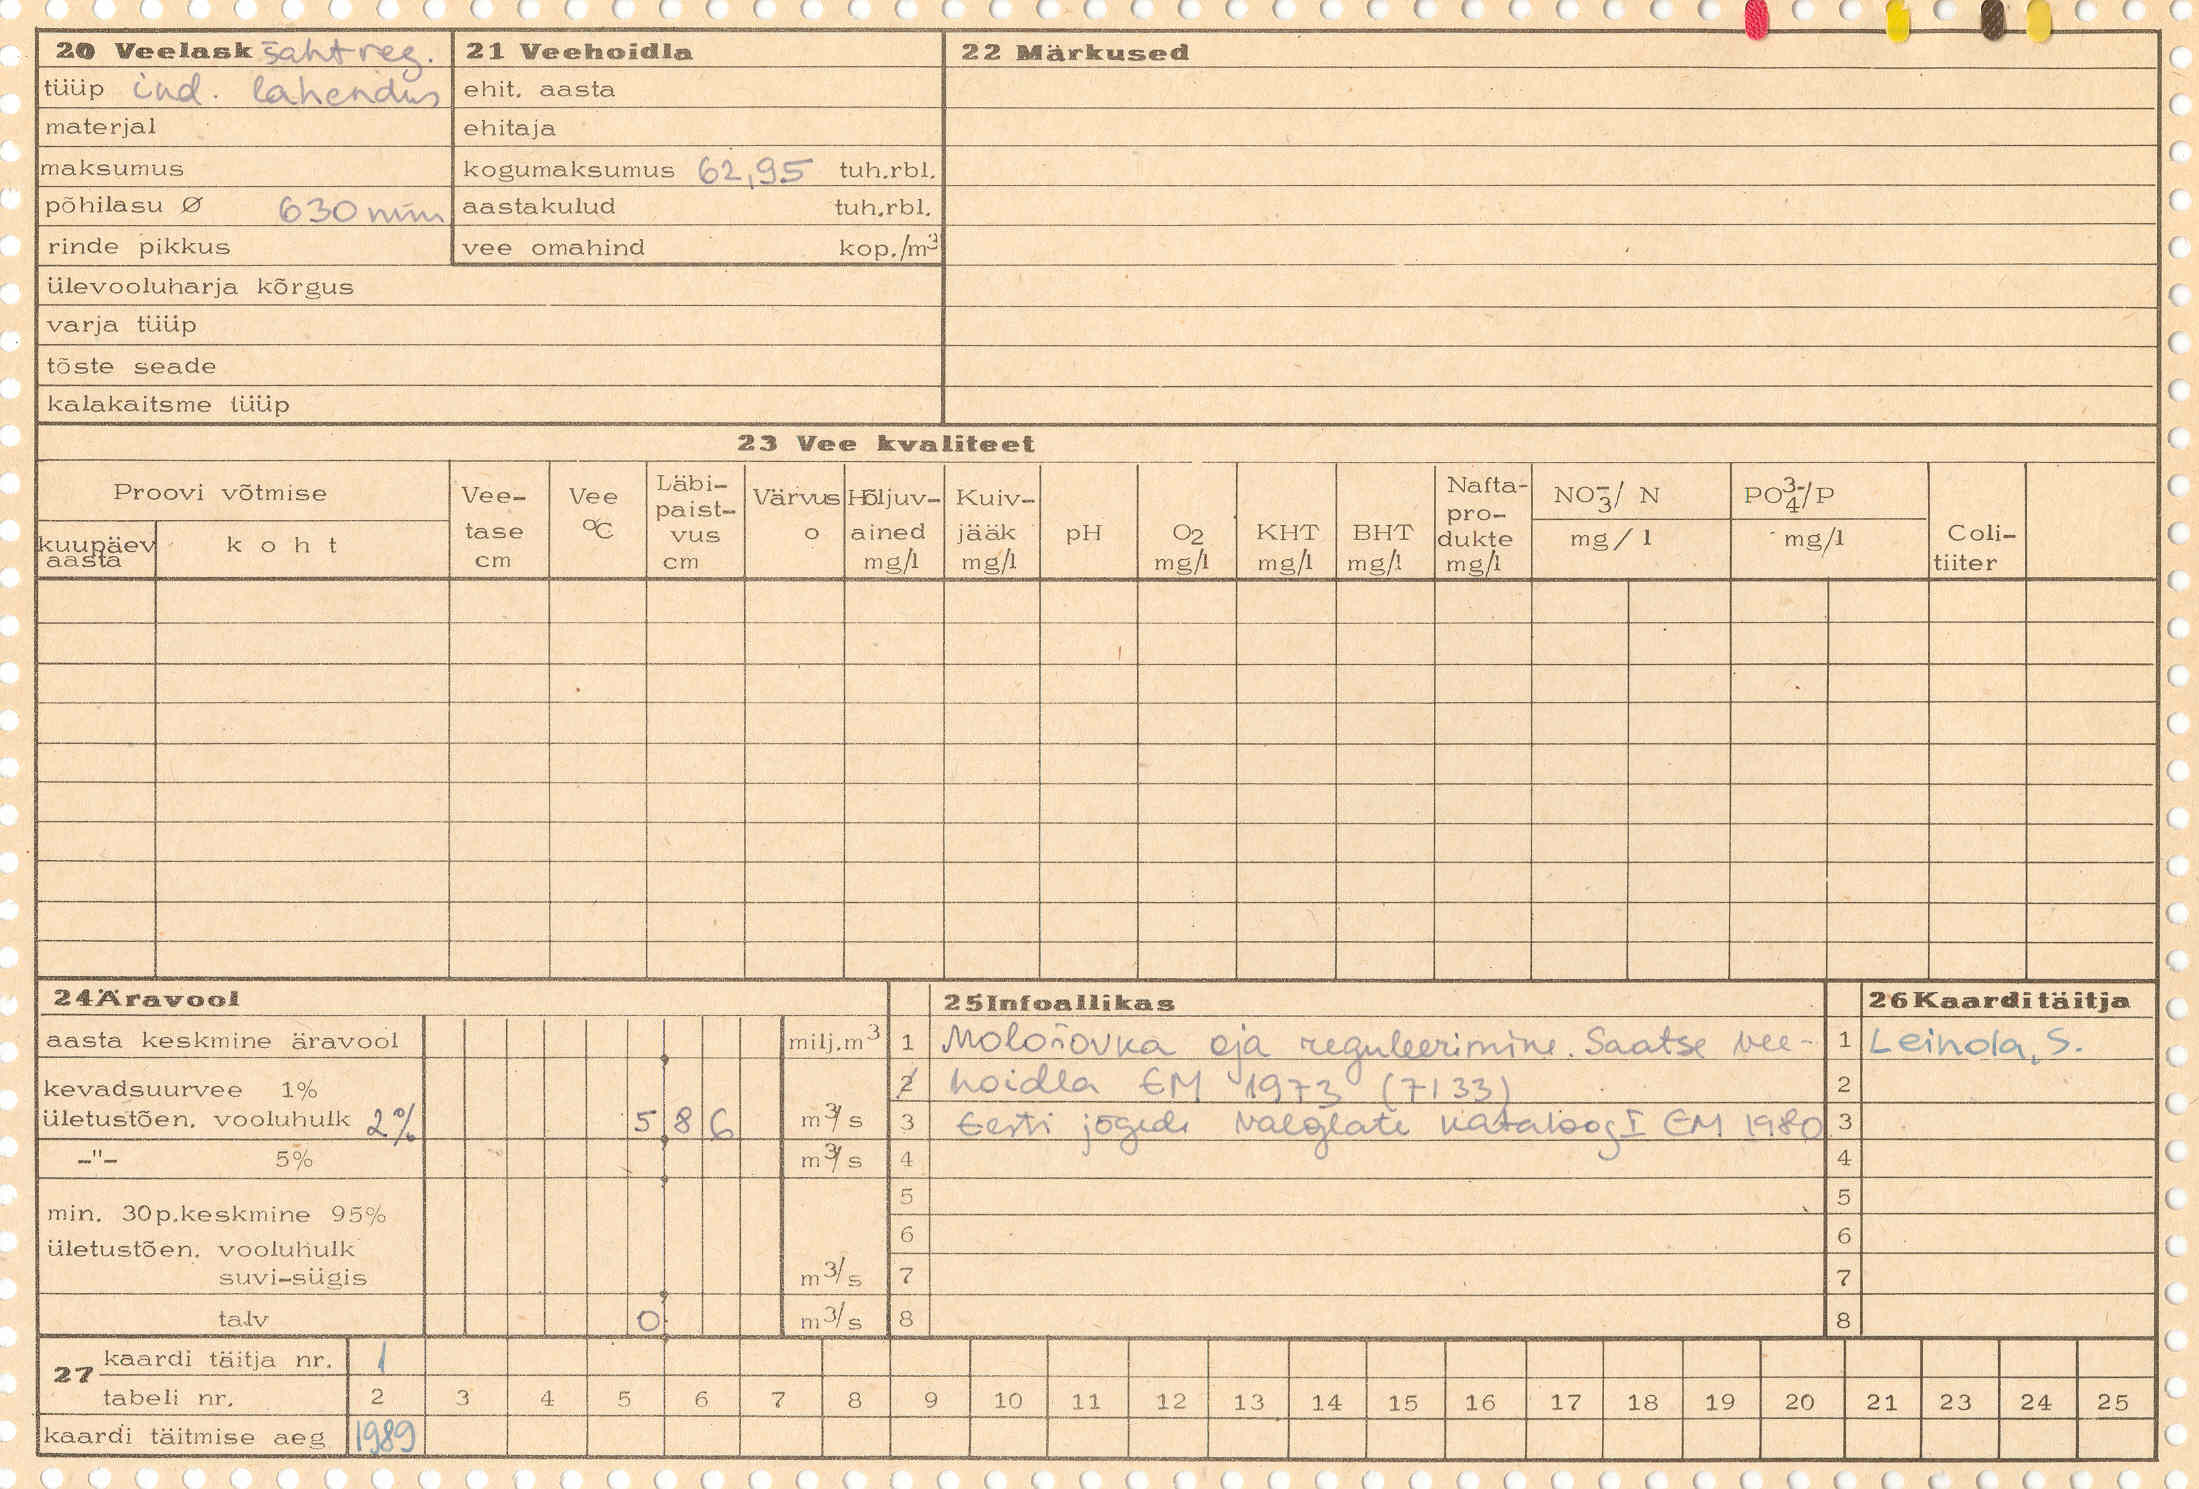 20 Veelask šahtreg.
tüüp ind. lahendus
materjal
maksumus
põhilasu Ø 630 mm
rinde pikkus
ülevooluharja kõrgus
varja tüüp
tõste seade
kalakaitsme tüüp
21 Veehoidla
ehit. aasta
ehitaja
kogumaksumus 62,95 tuh.rbl.
aastakulud tuh.rbl.
vee omahind kop./m³
22 Märkused
23 Vee kvaliteet
Proovi võtmise
kuupäev aasta
koht
Vee-
tase
cm
Vee
°C
Läbi-
paist-
vus
cm
Värvus
o
Hõljuv-
ained
mg/l
Kuiv-
jääk
mg/l
pH
O2
mg/l
KHT
mg/l
BHT
mg/l
Nafta-
pro-
dukte
mg/l
NO₃⁻/ N
mg/l
PO₄³⁻/P
mg/l
Coli-
tiiter
24 Äravool
aasta keskmine äravool milj.m³
kevadsuurvee 1%
ületustõen. vooluhulk 2% 5 8 6 m³/s
-"- 5% m³/s
min. 30p.keskmine 95%
ületustõen. vooluhulk
suvi-sügis m³/s
talv 0 m³/s
25 Infoallikas
1 Mološovka oja reguleerimine. Saatse vee-
2 hoidla EM 1973 (7133)
3 Eesti jõgede valglate kataloog I EM 1980
4
5
6
7
8
26 Kaardi täitja
1 Leinola, S.
2
3
4
5
6
7
8
27 kaardi täitja nr. 1
tabeli nr. 2 3 4 5 6 7 8 9 10 11 12 13 14 15 16 17 18 19 20 21 23 24 25
kaardi täitmise aeg 1989